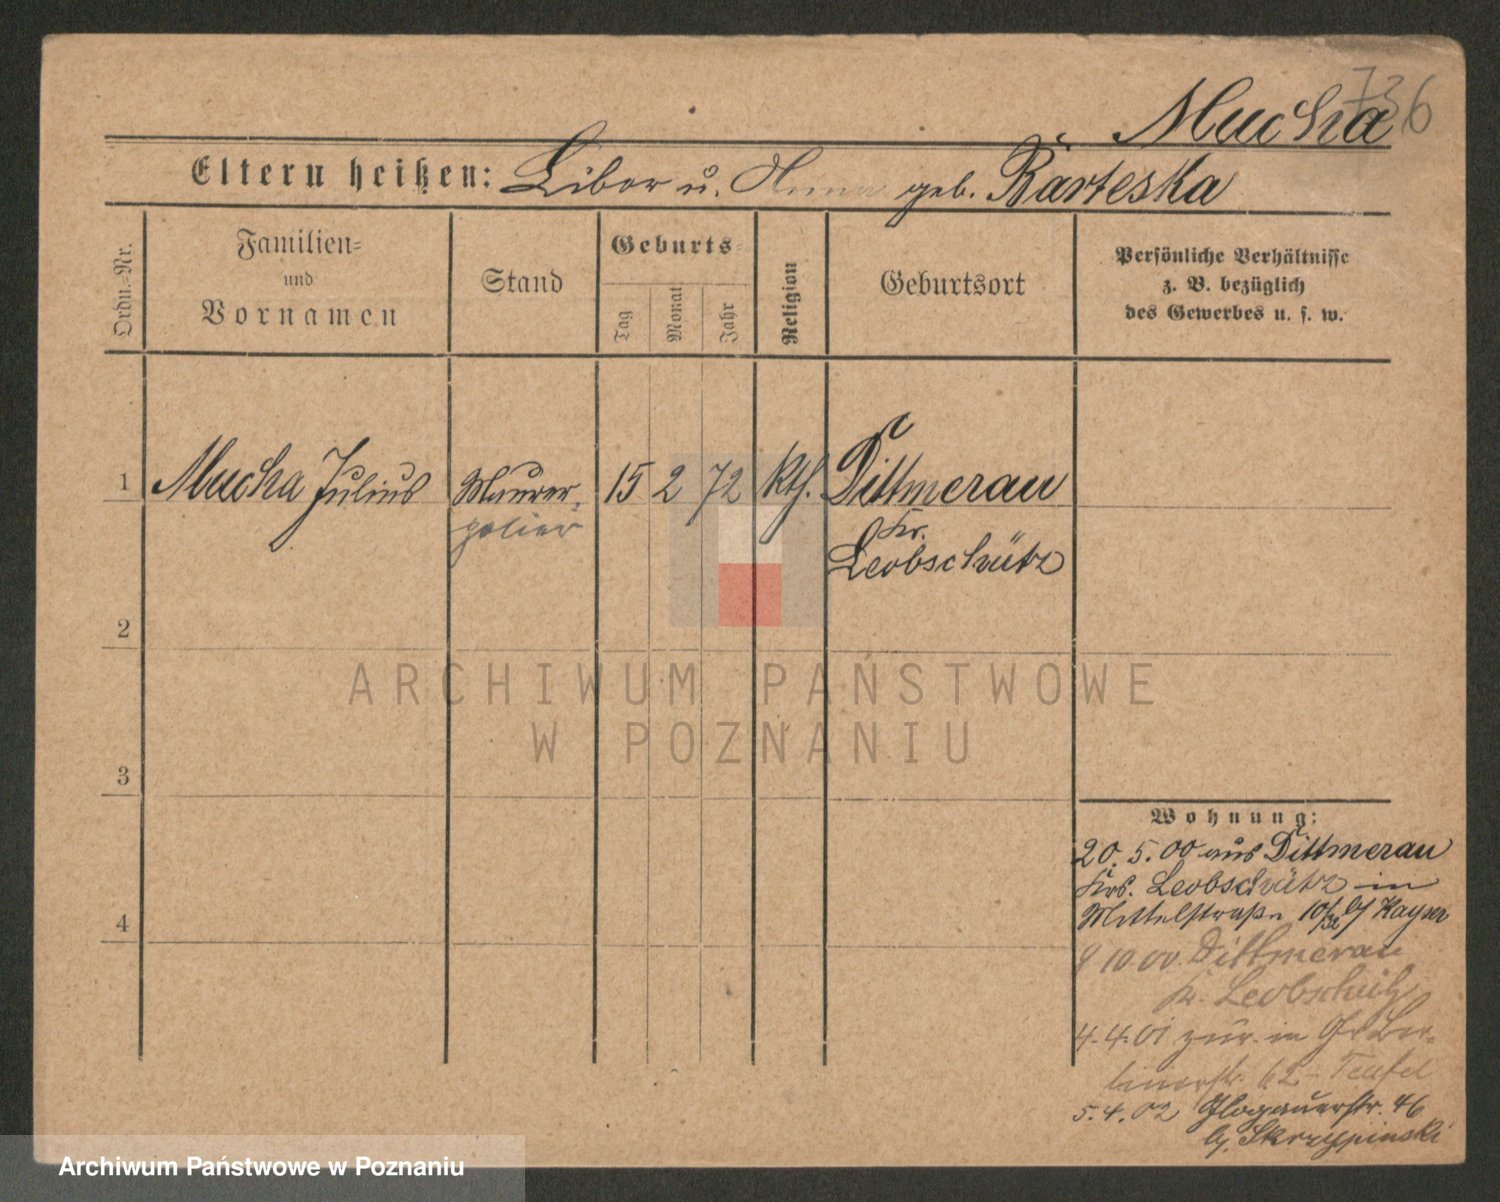 736
Mucha
Eltern heißen: Libor u. Anna geb. Barteska
Ordn.-Nr.
Familien-
und
Vornamen
Stand
Geburts-
Tag
Monat
Jahr
Religion
Geburtsort
Persönliche Verhältnisse
z. B. bezüglich
des Gewerbes u. s. w.
1 Mucha Julius Maurer- 15 2 72 kth. Dittmerau
polier Kr.
Leobschütz
2
ARCHIWUM PAŃSTWOWE
W POZNANIU
3
Wohnung:
20. 5. 00 aus Dittmerau
Krs. Leobschütz in
4
Mittelstraße 10/32 bj Kayser
10 00 Dittmerau
Kr. Leobschütz
4.4.01 zur. in Gr Ber-
linerstr. 62 - Teufel
5.4.02 Glogauerstr. 46
bj. Skrzypinski
Archiwum Państwowe w Poznaniu